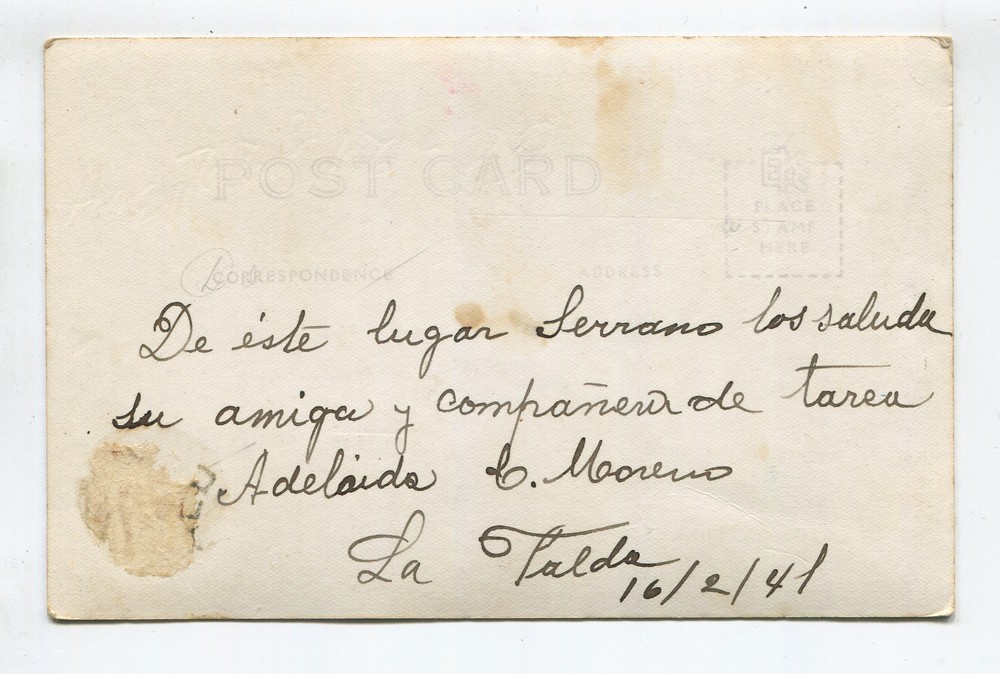 POST CARD
EKC
PLACE
STAMP
HERE
CORRESPONDENCE ADDRESS
De éste lugar Serrano los saluda
su amiga y compañera de tarea
Adelaida C. Moreno
La Falda
16/2/41